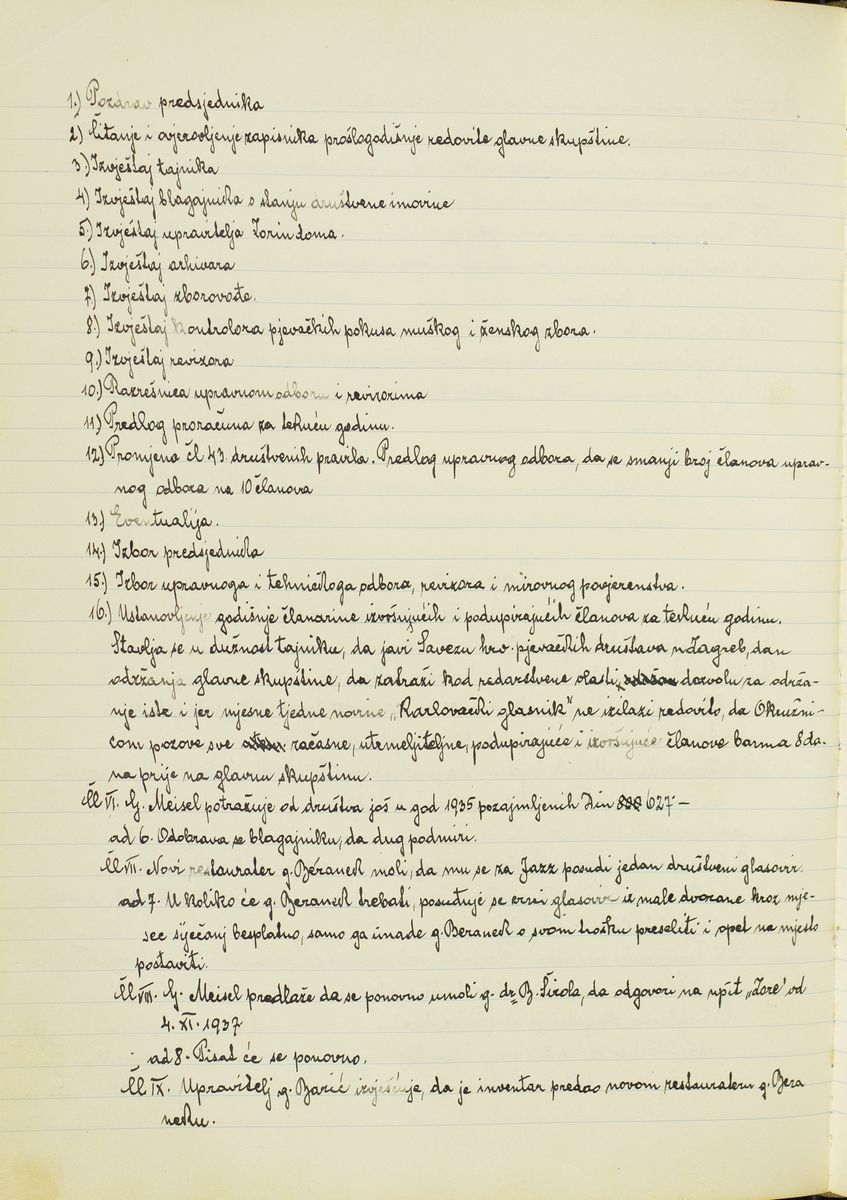 1.) Pozdrav predsjednika
2.) Čitanje i ovjerovljenje zapisnika prošlogodišnje redovite glavne skupštine.
3.) Izvještaj tajnika
4.) Izvještaj blagajnika o stanju društvene imovine
5.) Izvještaj upravitelja Zorin doma.
6.) Izvještaj arhivara
7.) Izvještaj zborovođe.
8.) Izvještaj kontrolora pjevačkih pokusa muškog i ženskog zbora.
9.) Izvještaj revizora
10.) Razrešnica upravnom odboru i revizorima
11.) Predlog proračuna za tekuću godinu.
12.) Promjena čl 43. društvenih pravila. Predlog upravnog odbora, da se smanji broj članova uprav-
nog odbora na 10 članova
13.) Eventualija.
14.) Izbor predsjednika
15.) Izbor upravnoga i tehničkoga odbora, revizora i mirovnog povjerenstva.
16.) Ustanovljenje godišnje članarine izvršujućih i podupirajućih članova za tekuću godinu.
Stavlja se u dužnost tajniku, da javi Savezu hrv. pjevačkih društava u Zagreb, dan
održanja glavne skupštine, da zatraži kod redarstvene vlasti dozvolu za održa-
nje iste i jer mjesne tjedne novine „Karlovački glasnik“ ne izilazi redovito, da Okružni-
com pozove sve začasne, utemeljiteljne, podupirajuće i izvršujuće članove barma 8 da-
na prije na glavnu skupštinu.
Čl VI. G. Meisel potražuje od društva još u god 1935 pozajmljenih Din 627 –
ad 6. Odobrava se blagajniku, da dug podmiri.
Čl VII. Novi restaurater g. Beranek moli, da mu se za Jazz posudi jedan društveni glasovir.
ad 7. U koliko će g. Beranek trebati, posuđuje se crni glasovir iz male dvorane kroz mje-
sec siječanj besplatno, samo ga imade g. Beranek o svom trošku preseliti i opet na mjesto
postaviti.
Čl VIII. G. Meisel predlaže da se ponovno umoli g. dr. B. Širola, da odgovori na upit „Zore“ od
4. XI. 1937
ad 8. Pisat će se ponovno.
Čl IX. Upravitelj g. Barić izvješćuje, da je inventar predao novom restaurateru g. Bera
neku.